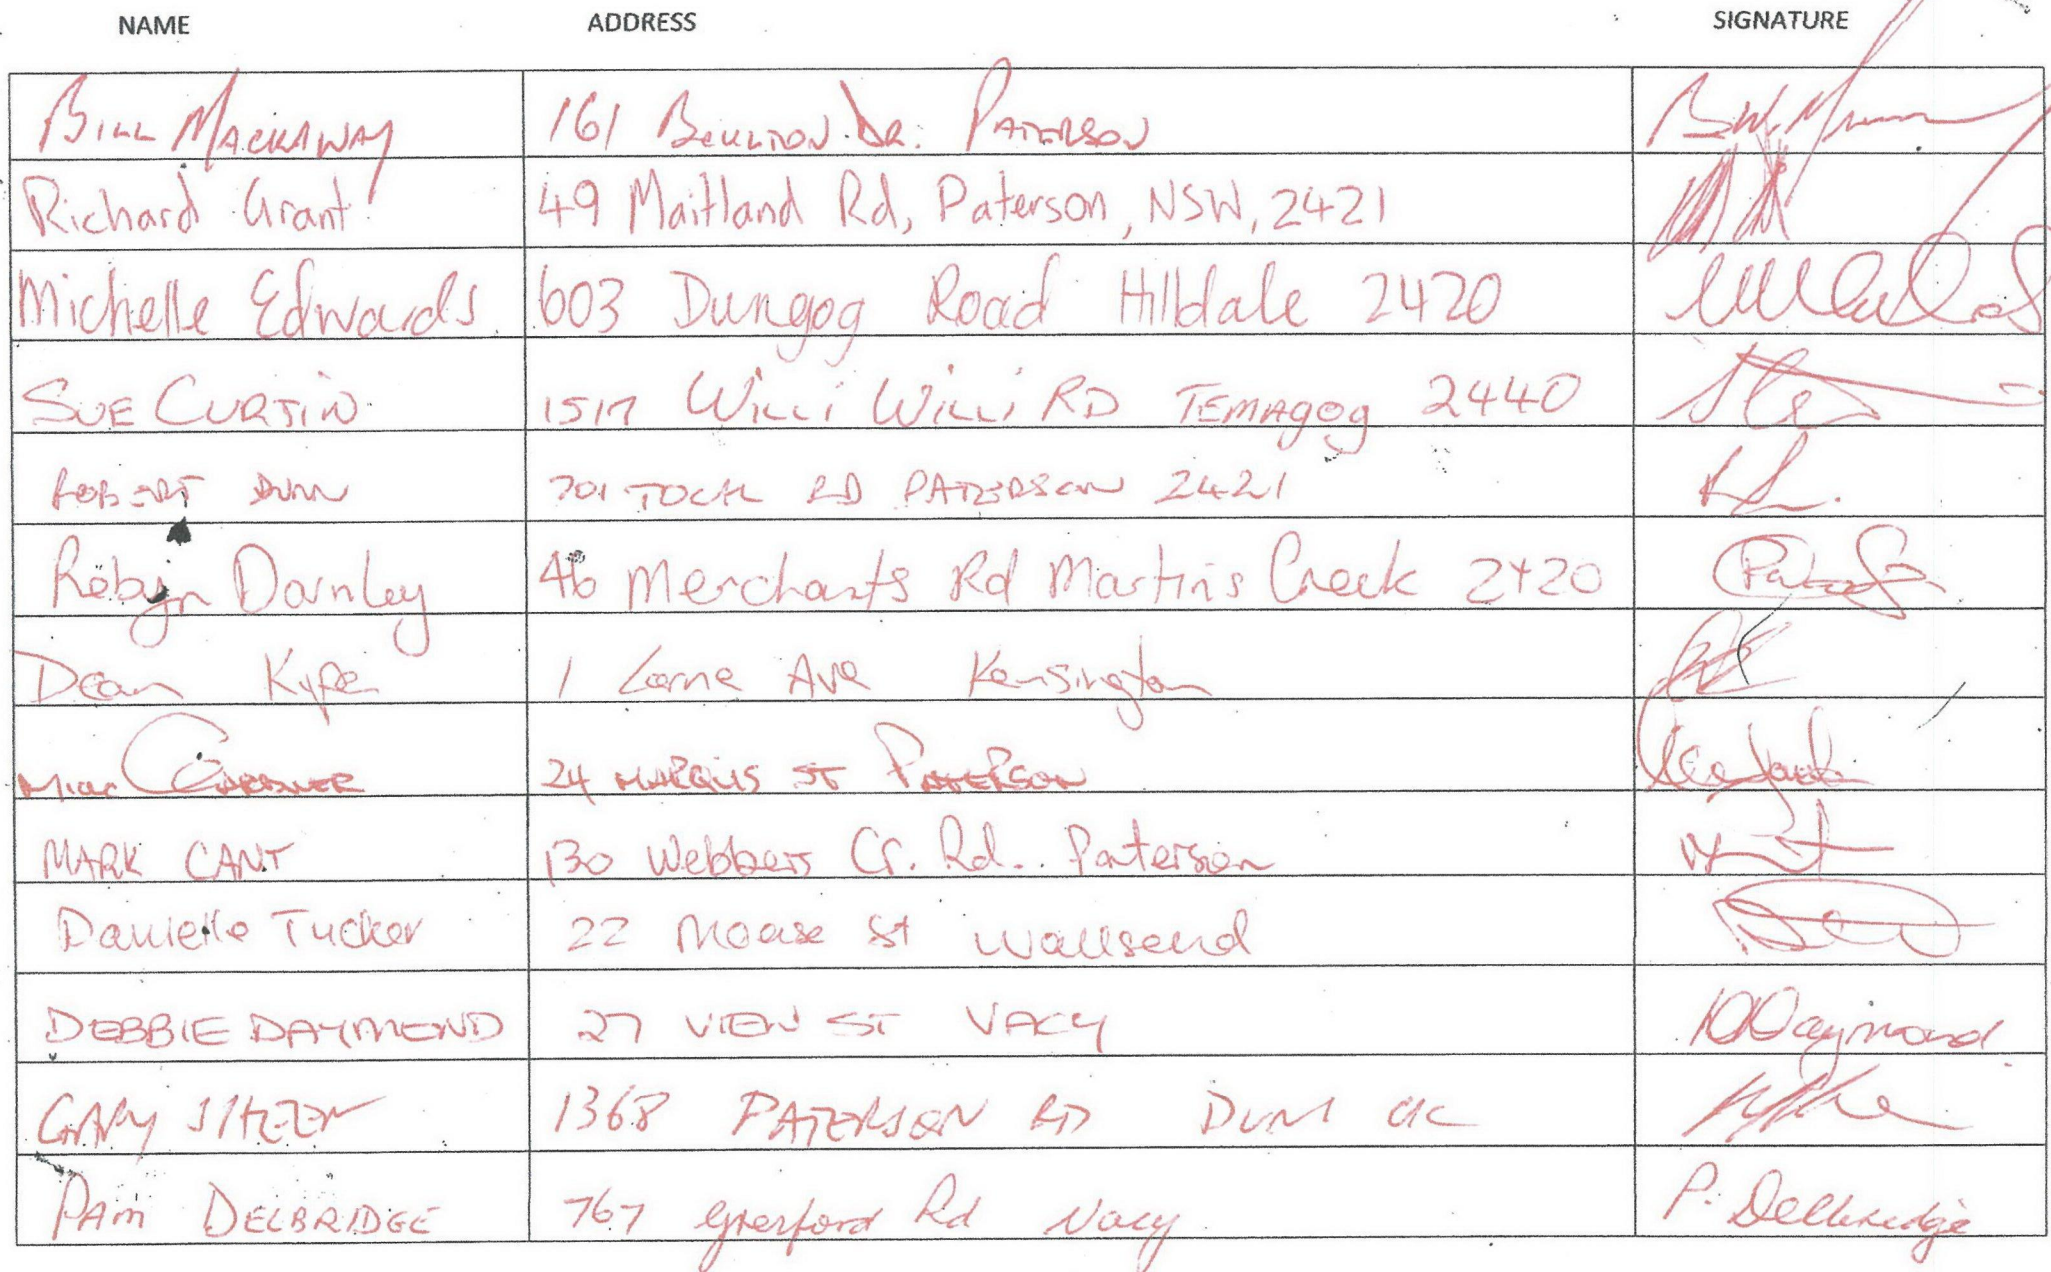 NAME ADDRESS SIGNATURE
BILL MACKAWAY 161 DR. PATERSON
Richard Grant 49 Maitland Rd, Paterson, NSW, 2421
Michelle Edwards 603 Dungog Road Hilldale 2420
SUE CURTIN 1517 WILLI WILLI RD TEMAGOG 2440
ROBERT DUNN 701 TOCAL RD PATERSON 2421
Robyn Darnley 46 Merchants Rd Martins Creek 2420
Dean Kype 1 Lorne Ave Kensington
GARDNER 24 MARQUIS ST PATERSON
MARK CANT 130 Webbers Cr. Rd. Paterson
Danielle Tucker 22 St Wallsend
DEBBIE DAYMOND 27 VIEW ST VACY DDaymond
GARY 1368 PATERSON RD
PAM DELBRIDGE 767 Gresford Rd Vacy P. Delbridge